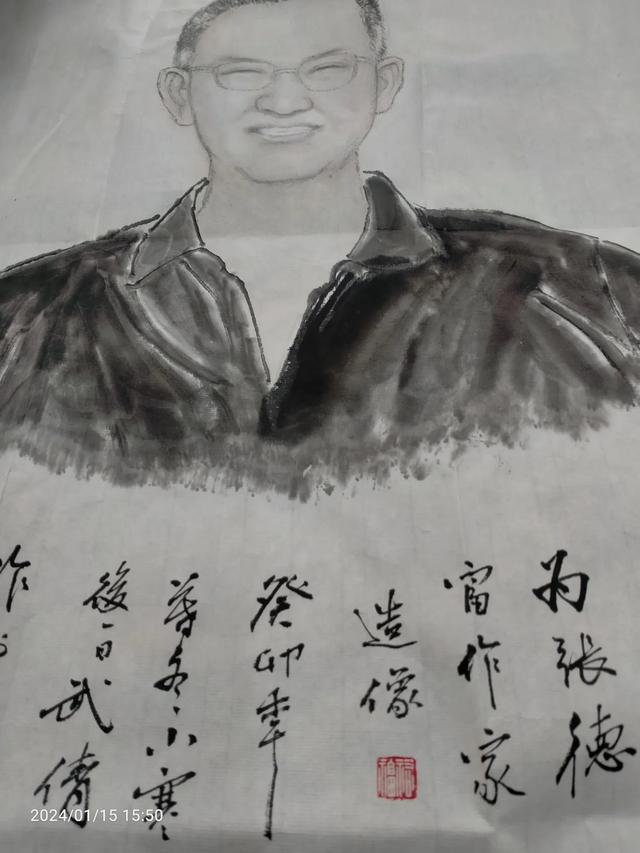 为張德
富作家
造像
癸卯年
冬小寒
後一日武倩
作
2024/01/15 15:50